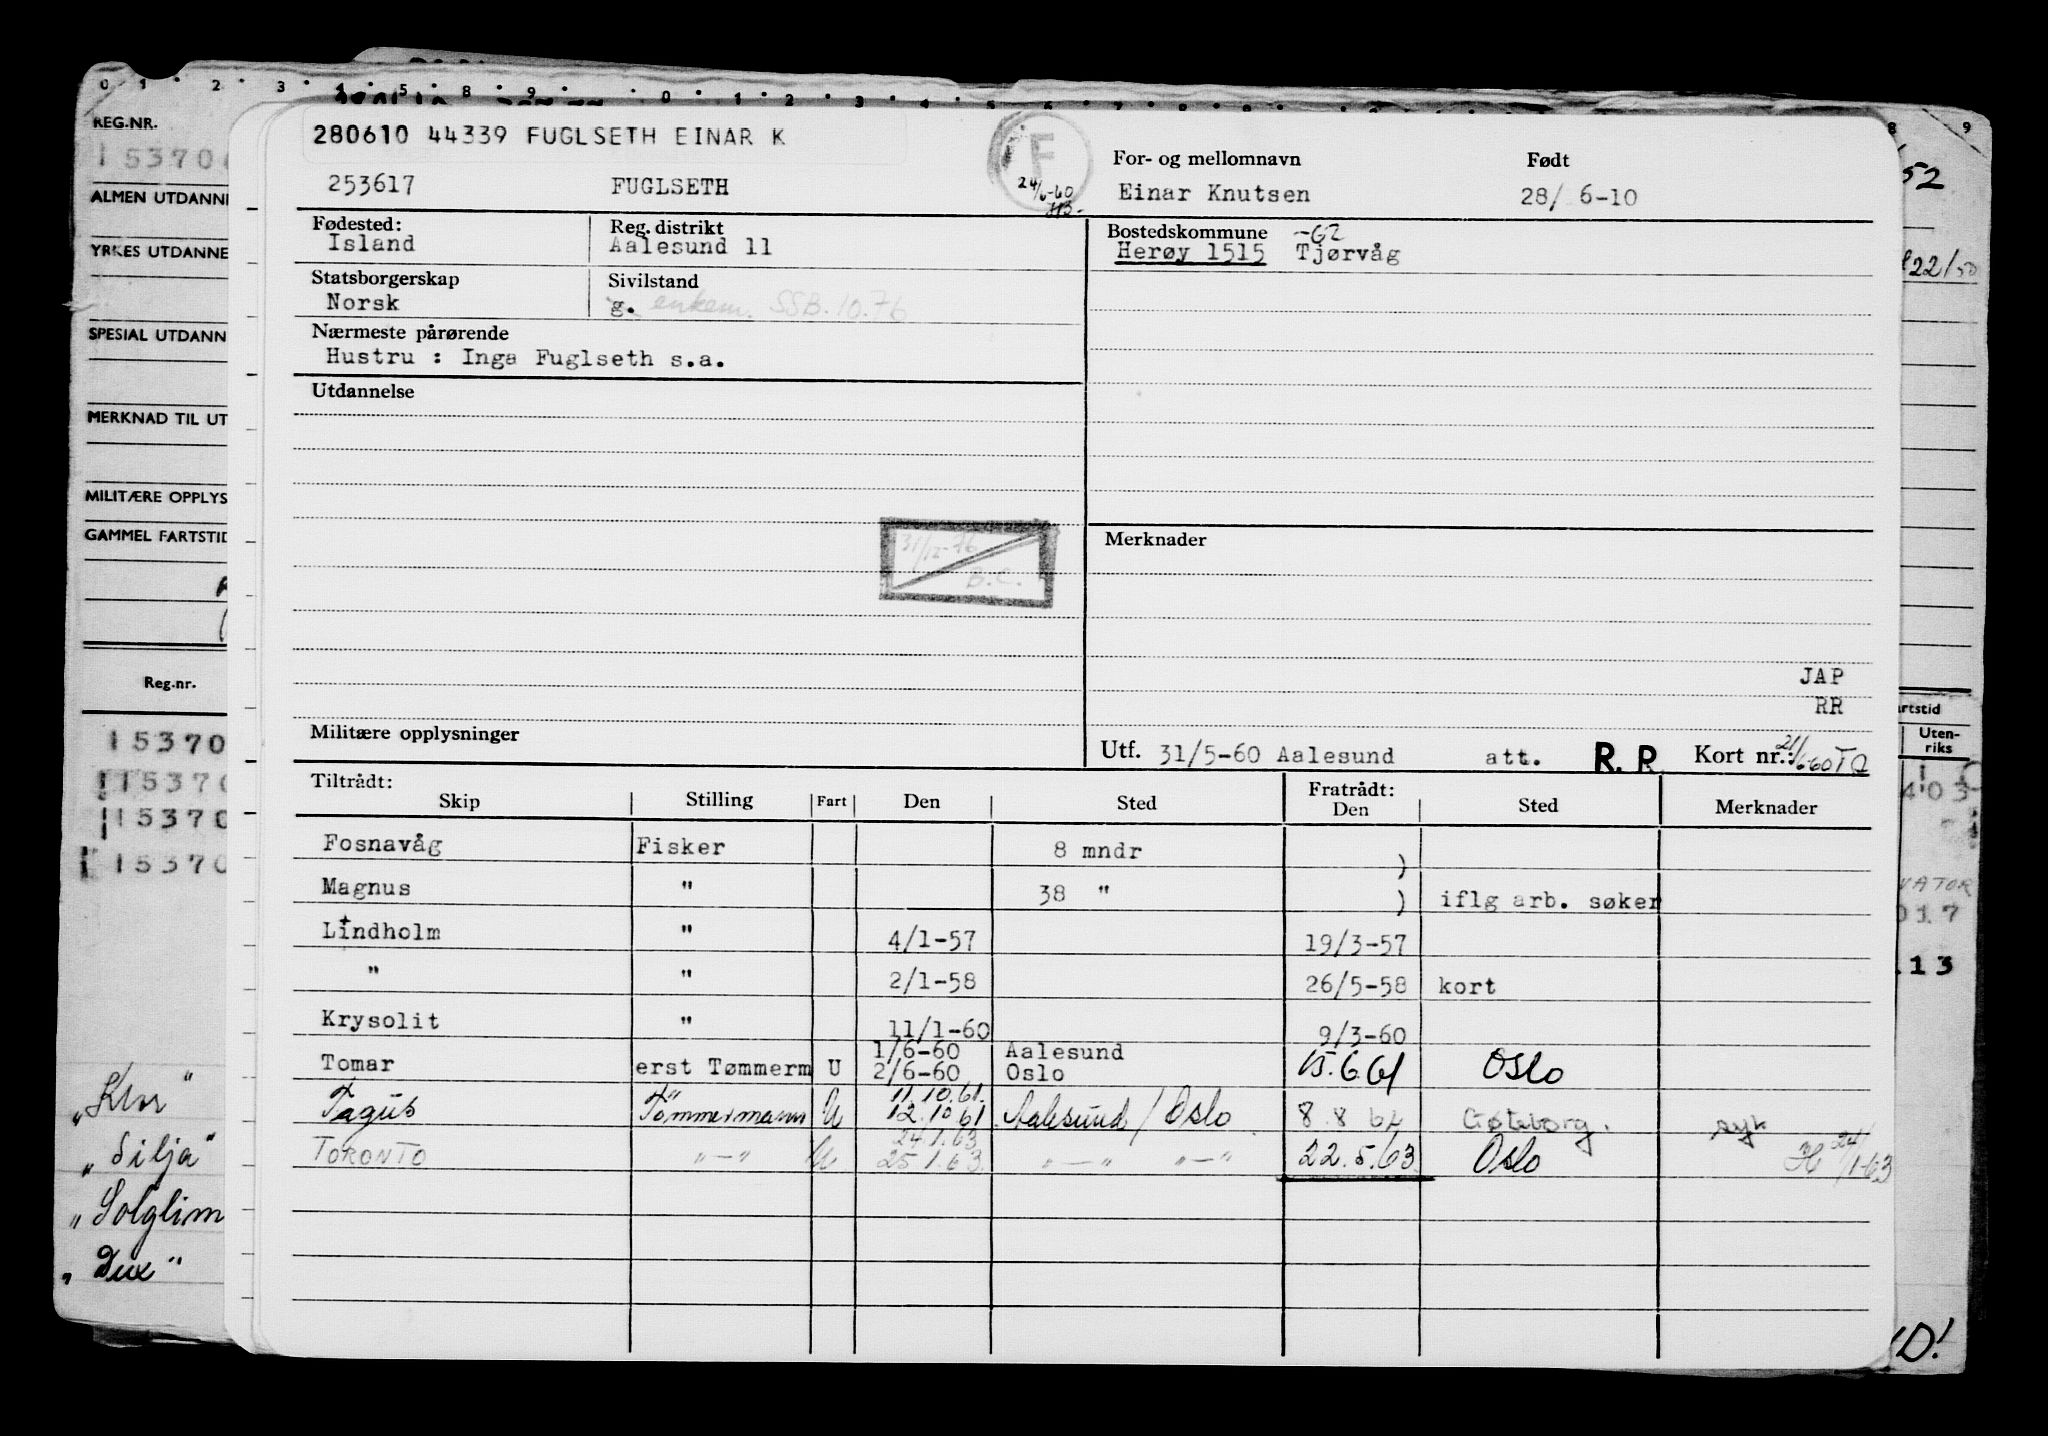 0 1 2 3 4 5 8 9 0 1 2 3 4 5 6 7 8 9
280610 44339 FUGLSETH EINAR K
F
24/6-60
HB.
253617 FUGLSETH
For- og mellomnavn Født
Einar Knutsen 28/ 6-10
Fødested: Reg. distrikt
Island Aalesund 11
Bostedskommune -62
Herøy 1515 Tjørvåg
Statsborgerskap Sivilstand
Norsk g. enkem. SSB.10.76
Nærmeste pårørende
Hustru : Inga Fuglseth s.a.
Utdannelse
31/12-76
B.C.
Merknader
JAP
RR
Militære opplysninger
Utf. 31/5-60 Aalesund att. R.R. Kort nr.: 21/6-60
Tiltrådt: Fratrådt:
Skip Stilling Fart Den Sted Den Sted Merknader
Fosnavåg Fisker 8 mndr )
Magnus " 38 " ) iflg arb. søker
Lindholm " 4/1-57 19/3-57
" " 2/1-58 26/5-58 kort
Krysolit " 11/1-60 9/3-60
Tomar erst Tømmerm U 1/6-60 Aalesund
2/6-60 Oslo 15.6.61 Oslo
Tagus Tømmermann U 11.10.61.
12.10.61 Aalesund / Oslo 8.8.62 Gøteborg. syk
TORONTO "—" U 24.1.63
25.1.63. "—" "—" 22.5.63 Oslo H 24/1-63
REG.NR.
15370
ALMEN UTDANNE
YRKES UTDANNE
SPESIAL UTDANN
MERKNAD TIL UT
MILITÆRE OPPLYS
GAMMEL FARTSTID
Reg.nr.
15370
15370
15370
15370
"Klar"
"Silja"
"Solglim
"Dux"
8 9
52
22/50
artstid
Uten-
riks
403
VATOR
017
13
D!